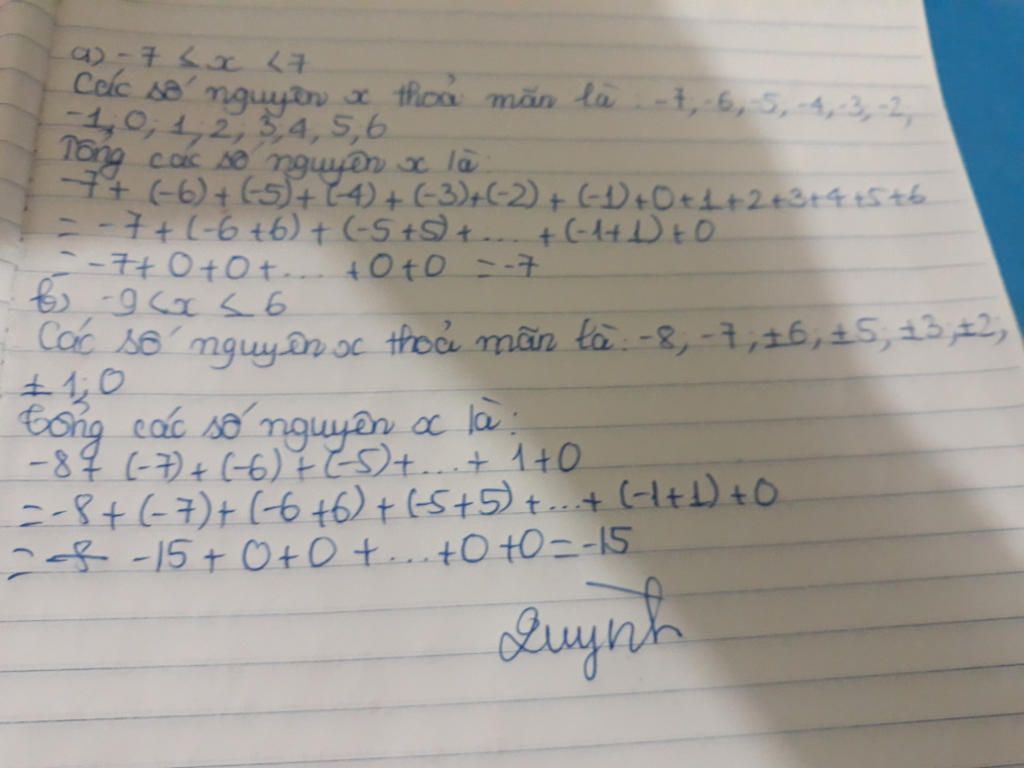 a) -7 ≤ x < 7
Các số nguyên x thoả mãn là: -7, -6, -5, -4, -3, -2,
-1, 0, 1, 2, 3, 4, 5, 6
Tổng các số nguyên x là:
-7 + (-6) + (-5) + (-4) + (-3) + (-2) + (-1) + 0 + 1 + 2 + 3 + 4 + 5 + 6
= -7 + (-6 + 6) + (-5 + 5) + ... + (-1 + 1) + 0
= -7 + 0 + 0 + ... + 0 + 0 = -7
b) -9 < x ≤ 6
Các số nguyên x thoả mãn là: -8; -7; ±6; ±5; ±3; ±2;
± 1; 0
tổng các số nguyên x là:
-8 + (-7) + (-6) + (-5) + ... + 1 + 0
= -8 + (-7) + (-6 + 6) + (-5 + 5) + ... + (-1 + 1) + 0
= -8 -15 + 0 + 0 + ... + 0 + 0 = -15
Quỳnh